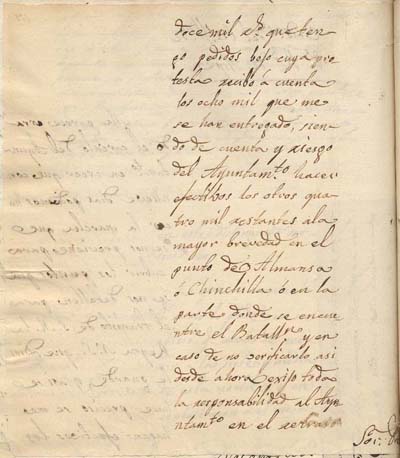 doce mil rs. que ten
go pedidos bajo cuya pro
testa recibo á cuenta
los ocho mil que me
se han entregado, sien
do de cuenta y riesgo
del Ayuntamto. hacer
efectibos los otros qua
tro mil restantes ala
mayor brevedad en el
punto de Almansa
ó Chinchilla ó en la
parte donde se encue
ntre el Batalln. y en
caso de no verificarlo asi
desde ahora exijo toda
la responsabilidad al Ayu
ntamto. en el retraso